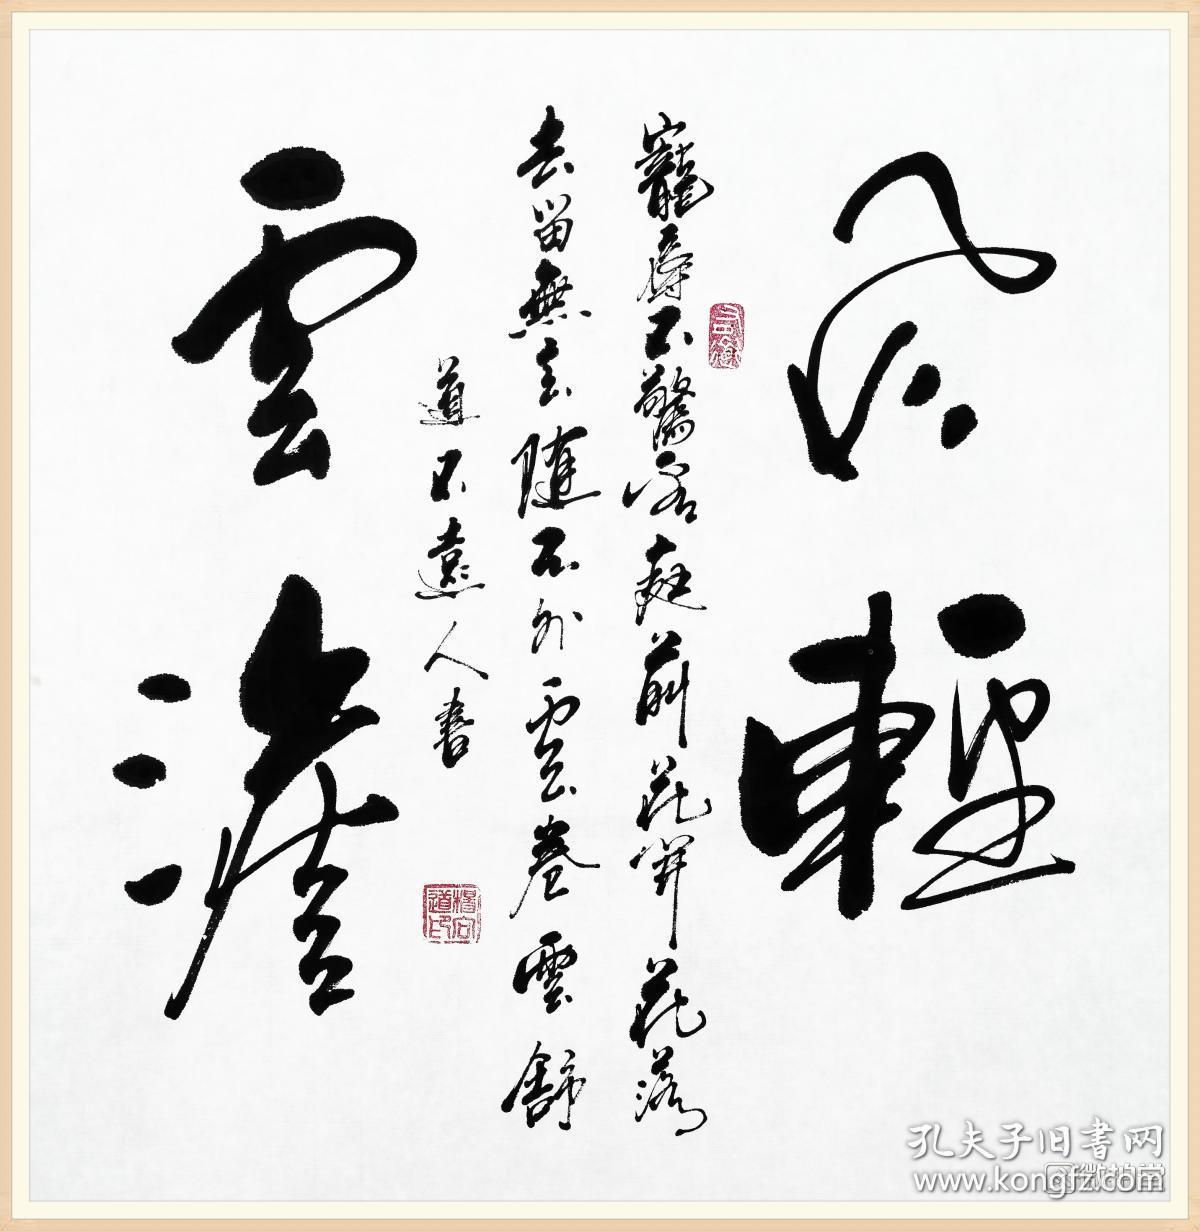 風輕
寵辱不驚看庭前花開花落
去留無意隨天外雲卷雲舒
道不遠人書
楊向道印
雲澹
孔夫子旧書网
www.kongfz.com
微拍堂